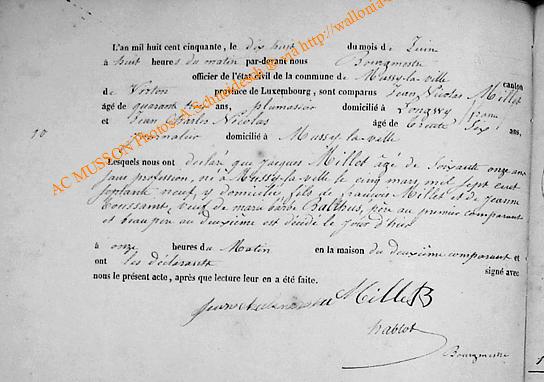 L'an mil huit cent cinquante, le dix huit du mois de Juin
à huit heures du matin par-devant nous Bourgmestre
officier de l'état civil de la commune de Mussy-la-ville canton
de Virton province de Luxembourg, sont comparus Jean Nicolas Millet
âgé de quarante trois ans, domicilié à Longwy france
et Jean Charles Nicolas âgé de trente six ans,
10 journalier domicilié à Mussy-la-ville
Lesquels nous ont déclaré que Jacques Millet âgé de soixante onze ans
sans profession, né à Mussy-la-ville le cinq mars mil sept cent
septante neuf, y domicilié, fils de françois Millet et de Jeanne
Toussaint, veuf de marie barbe Balthus, père au premier comparant
et beau père au deuxième est décédé le jour d'hier
à onze heures du Matin en la maison du deuxième comparant et
ont les déclarants signé avec
nous le présent acte, après que lecture leur en a été faite.
Millet
Bourgmestre
AC MUSSON Photos A.Schneidesch © via http://wallonia-